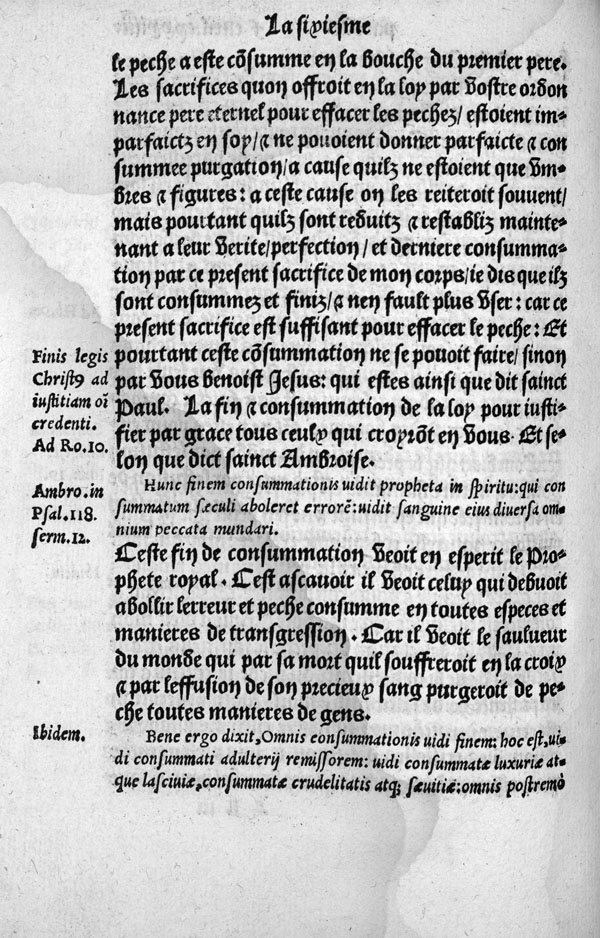 La sixiesme
le peche a este cõsumme en la bouche du premier pere.
Les sacrifices quon offroit en la loy par vostre ordon
nance pere eternel pour effacer les pechez/ estoient im-
parfaictz en soy/ & ne pouoient donner parfaicte & con
summee purgation/ a cause quilz ne estoient que vm-
bres & figures: a ceste cause on les reiteroit souuent/
mais pourtant quilz sont reduitz & restabliz mainte-
nant a leur verite/ perfection/ et derniere consumma-
tion par ce present sacrifice de mon corps/ ie dis que ilz
sont consummez et finiz/ & nen fault plus vser: car ce
present sacrifice est suffisant pour effacer le peche: Et
Finis legis
Christ9 ad
iustitiam oı̃
credenti.
Ad Ro.10.
pourtant ceste cõsummation ne se pouoit faire/ sinon
par vous benoist Jesus: qui estes ainsi que dit sainct
Paul. La fin & consummation de la loy pour iusti-
fier par grace tous ceulx qui croyrõt en vous. Et se-
lon que dict sainct Ambroise.
Ambro.in
Psal.118.
serm.12.
Hunc finem consummationis vidit propheta in spiritu: qui con
summatum sæculi aboleret errorẽ: vidit sanguine eius diuersa om
nium peccata mundari.
Ceste fin de consummation veoit en esperit le Pro-
phete royal. Cest ascauoir il veoit celuy qui debuoit
abollir lerreur et peche consumme en toutes especes et
manieres de transgression. Car il veoit le saulueur
du monde qui par sa mort quil souffreroit en la croix
& par leffusion de son precieux sang purgeroit de pe-
che toutes manieres de gens.
Ibidem.
Bene ergo dixit, Omnis consummationis uidi finem: hoc est, ui-
di consummati adulterij remissorem: uidi consummatæ luxuriæ at-
que lasciuiæ, consummatæ crudelitatis atq; sæuitiæ: omnis postremò